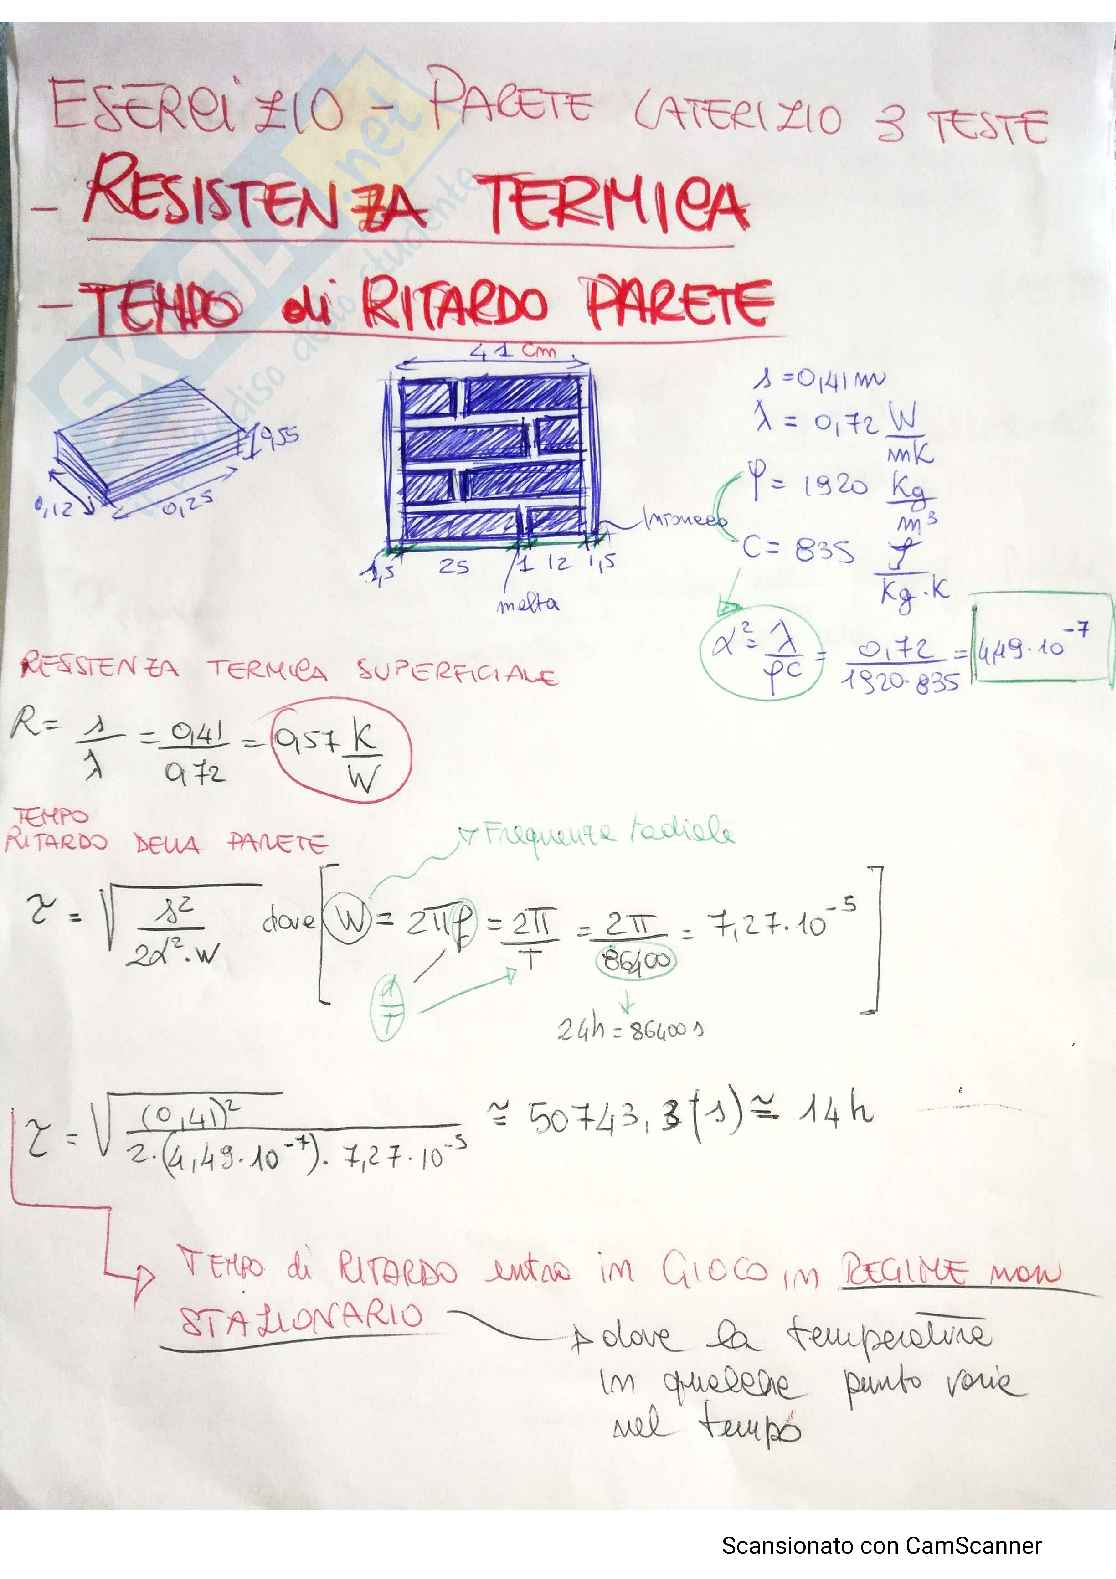 ESERCIZIO - PARETE LATERIZIO 3 TESTE
- RESISTENZA TERMICA
- TEMPO di RITARDO PARETE
SKUOLA.net
41 cm
0,12
0,25
0,55
1,5 25 1 12 1,5
melta
Intonaco
s = 0,41 m
λ = 0,72 W/mK
φ = 1920 Kg/m³
C = 835 J/Kg·K
α² = λ/φC = 0,72/1920·835 = 4,49·10⁻⁷
RESISTENZA TERMICA SUPERFICIALE
R = s/λ = 0,41/0,72 = 0,57 K/W
TEMPO
RITARDO DELLA PARETE
Frequenza radiale
τ = √(s²/2α²·w) dove [W = 2πf = 2π/T = 2π/86400 = 7,27·10⁻⁵]
1/T
24h = 86400 s
τ = √((0,41)²/2·(4,49·10⁻⁷)·7,27·10⁻⁵) ≅ 50743,3 (s) ≅ 14h
TEMPO di RITARDO entra in GIOCO in REGIME non
STAZIONARIO
dove la temperatura
in qualche punto varia
nel tempo
Scansionato con CamScanner